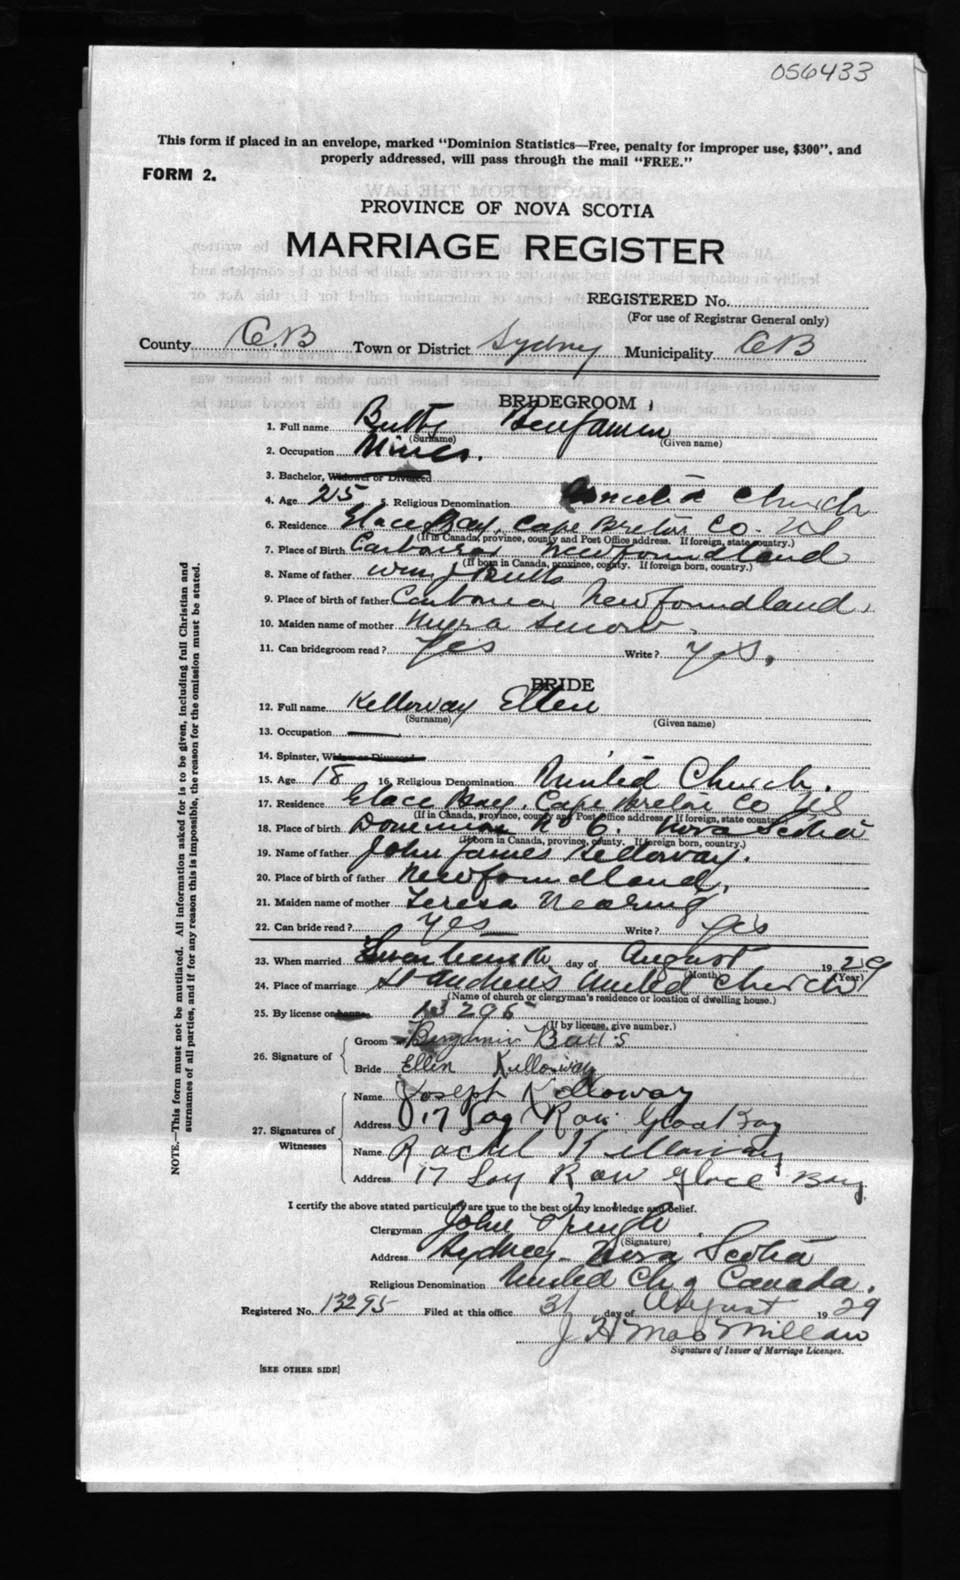 056433
This form if placed in an envelope, marked "Dominion Statistics—Free, penalty for improper use, $300", and
properly addressed, will pass through the mail "FREE."
FORM 2.
PROVINCE OF NOVA SCOTIA
MARRIAGE REGISTER
REGISTERED No.
(For use of Registrar General only)
County C.B Town or District Sydney Municipality CB
BRIDEGROOM
1. Full name Butts Benjamin
(Surname) (Given name)
2. Occupation
3. Bachelor, Widower or Divorced
4. Age 25 5. Religious Denomination United Church
6. Residence Glace Bay, Cape Breton Co. NS
(If in Canada, province, county and Post Office address. If foreign, state country.)
7. Place of Birth Carbonear Newfoundland
(If born in Canada, province, county. If foreign born, country.)
8. Name of father Wm J Butts
9. Place of birth of father Carbonear Newfoundland.
10. Maiden name of mother Myra
11. Can bridegroom read? Yes Write? Yes.
BRIDE
12. Full name Kelloway Ellen
(Surname) (Given name)
13. Occupation
14. Spinster, Widow or Divorced
15. Age 18 16. Religious Denomination United Church.
17. Residence Glace Bay, Cape Breton Co NS
(If in Canada, province, county and Post Office address. If foreign, state country.)
18. Place of birth Dominion No 6. Nova Scotia
(If born in Canada, province, county. If foreign born, country.)
19. Name of father John James Kelloway.
20. Place of birth of father Newfoundland,
21. Maiden name of mother Teresa Nearing
22. Can bride read? Yes Write? Yes
23. When married Seventeenth day of August 1929
(Month) (Year)
24. Place of marriage St Andrew's United Church
(Name of church or clergyman's residence or location of dwelling house.)
25. By license or banns 13295
(If by license, give number.)
26. Signature of
Groom Benjamin Butts
Bride Ellen Kelloway
27. Signatures of Witnesses
Name Joseph Kelloway
Address 17 Row Glace Bay
Name Rachel Kelloway
Address 17 Row Glace Bay
I certify the above stated particulars are true to the best of my knowledge and belief.
Clergyman John Pringle
(Signature)
Address Sydney Nova Scotia
Religious Denomination United Ch of Canada.
Registered No. 13295 Filed at this office 31 day of August 1929
J H MacMillan
Signature of Issuer of Marriage Licenses.
[SEE OTHER SIDE]
NOTE.—This form must not be mutilated. All information asked for is to be given, including full Christian and
surnames of all parties, and if for any reason this is impossible, the reason for the omission must be stated.